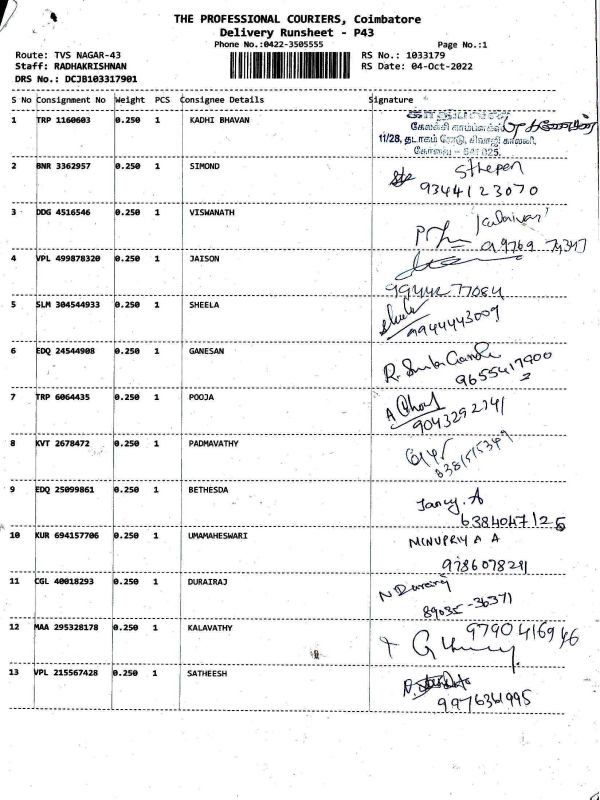 THE PROFESSIONAL COURIERS, Coimbatore
Delivery Runsheet - P43
Phone No.:0422-3505555 Page No.:1
Route: TVS NAGAR-43 RS No.: 1033179
Staff: RADHAKRISHNAN RS Date: 04-Oct-2022
DRS No.: DCJB103317901
S No Consignment No Weight PCS Consignee Details Signature
1 TRP 1160603 0.250 1 KADHI BHAVAN
11/28, தடாகம் ரோடு, சிவாஜி காலனி,
கோவை - 641 025.
2 BNR 3362957 0.250 1 SIMOND Sthepen
9344123070
3 DDG 4516546 0.250 1 VISWANATH
4 VPL 499878320 0.250 1 JAISON
9944277084
5 SLM 304544933 0.250 1 SHEELA
9944443009
6 EDQ 24544908 0.250 1 GANESAN
9655417900
7 TRP 6064435 0.250 1 POOJA
9043292741
8 KVT 2678472 0.250 1 PADMAVATHY
9 EDQ 25099861 0.250 1 BETHESDA Jancy. A
6384047125
10 KUR 694157706 0.250 1 UMAMAHESWARI MINUPRIYA A
9786078281
11 CGL 40018293 0.250 1 DURAIRAJ N Durairaj
89035-36371
12 MAA 295328178 0.250 1 KALAVATHY 9790416946
13 VPL 215567428 0.250 1 SATHEESH
9976361995